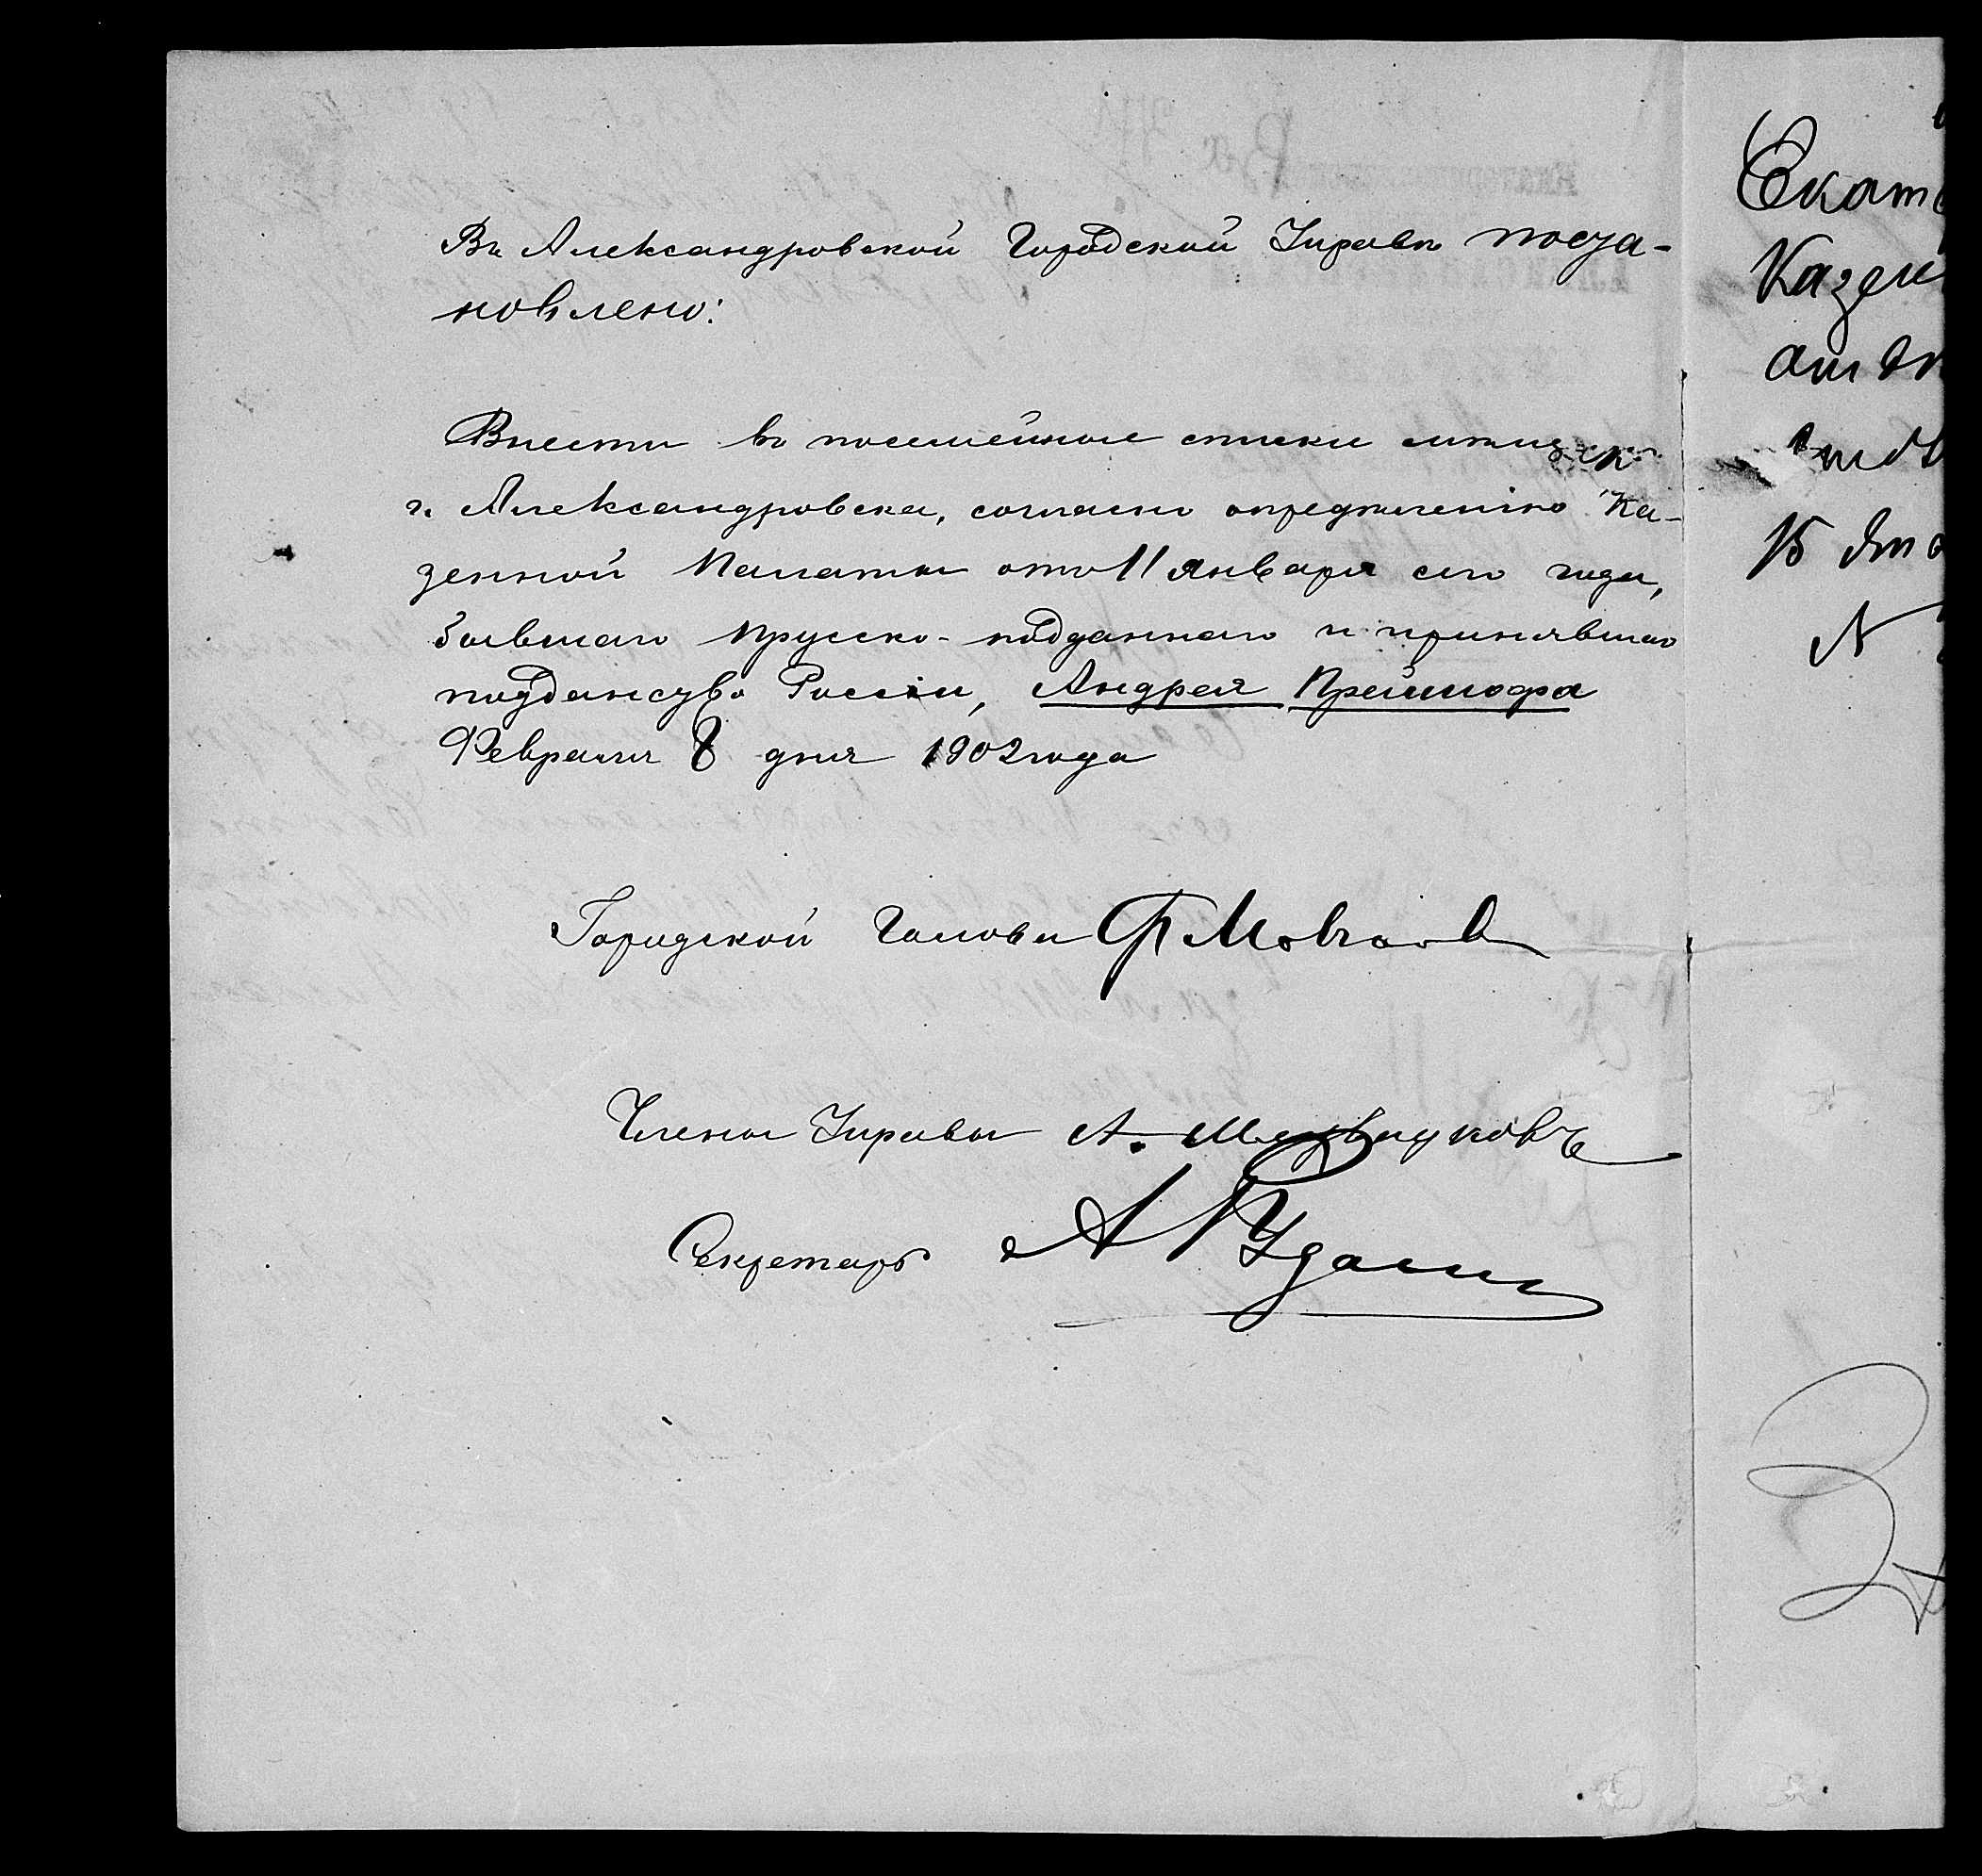 Въ Александровской Городской Управѣ поста-
новлено:
Внести въ посемейные списки мѣщанъ
г. Александровска, согласно опредѣленію Ка-
зенной Палаты отъ 11 января сего года,
бывшаго прусско-подданнаго и принявшаго
подданство Россіи, Андрея Прейшофа
Февраля 8 дня 1902 года
Городской Голова Ф Мовчан
Члены Управы А.
Секретарь А
Екат
Казен
15
N